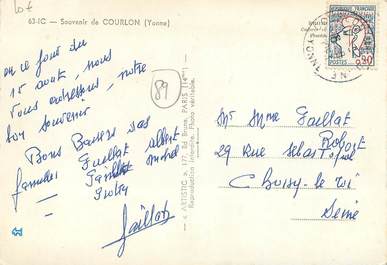 10€
63-IC — Souvenir de COURLON (Yonne)
en ce jour du
15 août, nous
vous adressons, notre
bon souvenir
Bons Baisers des
familles Gaillot Albert
Gaillot Michel
Gaillot
89
« ARTISTIC », 177, Rd Baron, PARIS
Reproduction interdite. Photo véritable.
REPUBLIQUE FRANÇAISE
POSTES
0,30
YONNE
Mr Mme Gaillat
Robert
29 Rue Sébastopol
Choisy-le-Roi
Seine